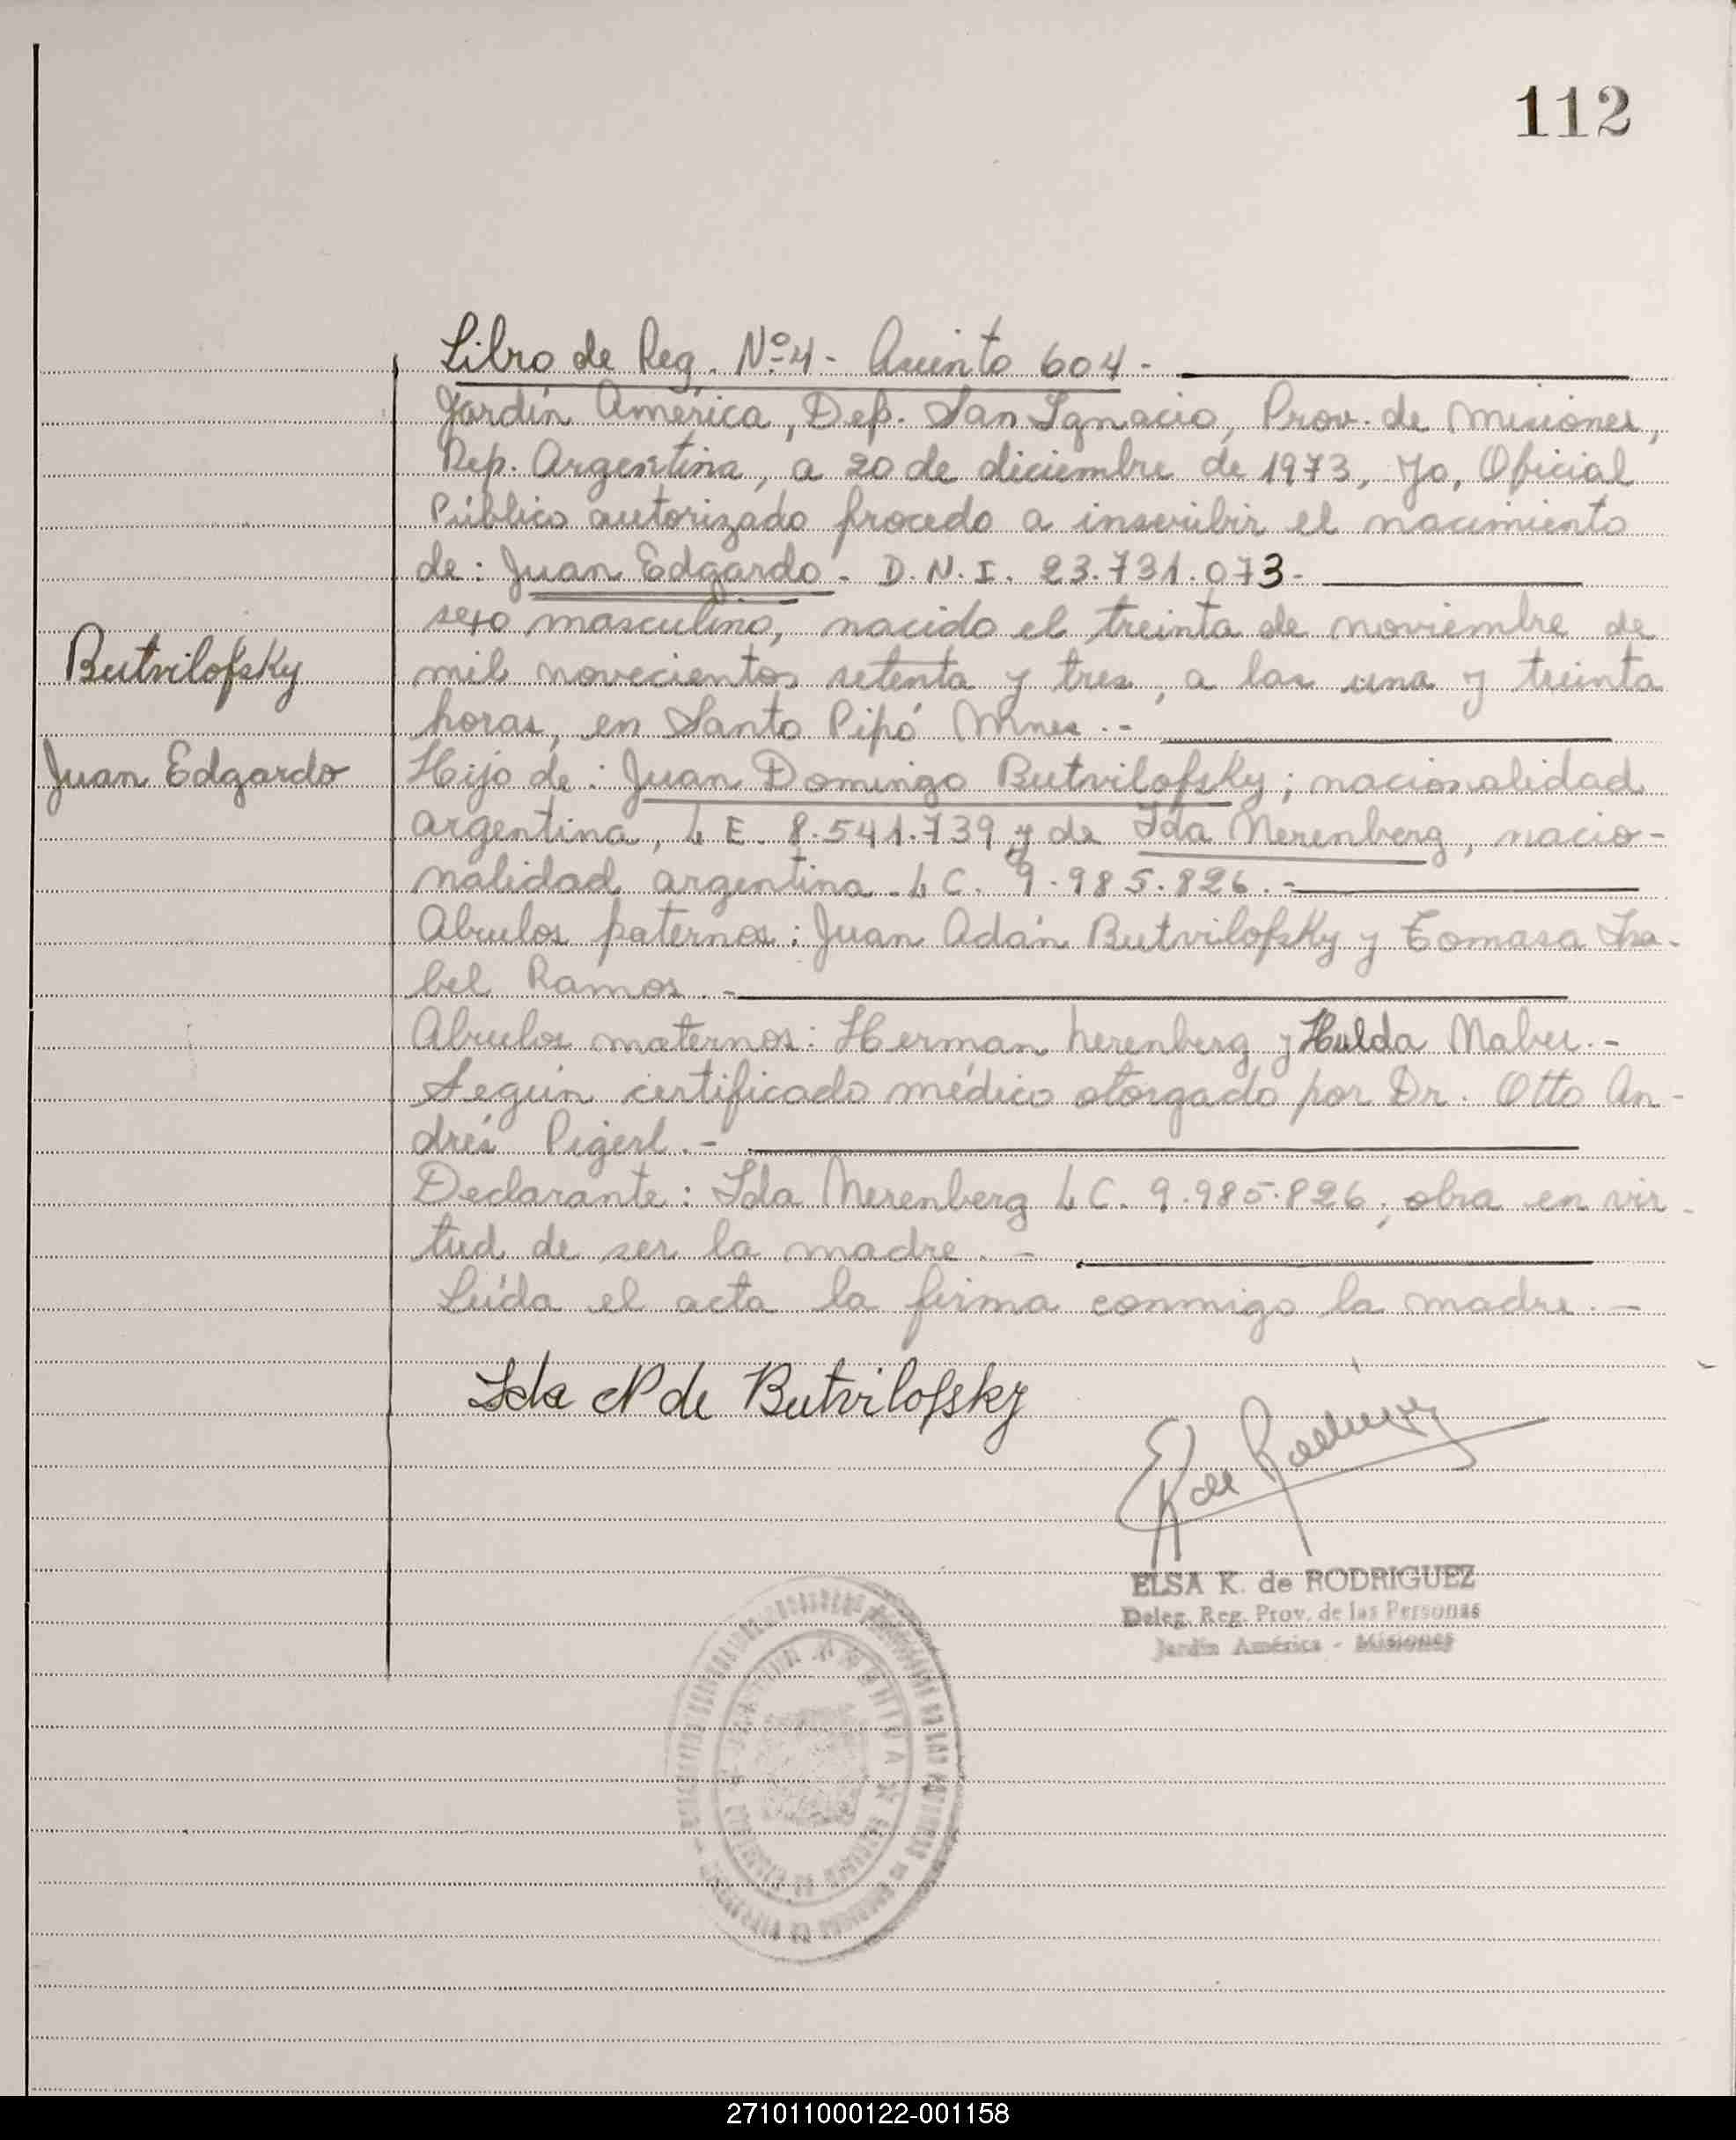 112
Libro de Reg. Nº 4 - Asiento 604 -
Jardín América, Dep. San Ignacio, Prov. de Misiones,
Rep. Argentina, a 20 de diciembre de 1973, Yo, Oficial
Público autorizado procedo a inscribir el nacimiento
de: Juan Edgardo - D.N.I. 23.731.073-
sexo masculino, nacido el treinta de noviembre de
Butvilofsky
mil novecientos setenta y tres, a las una y treinta
horas, en Santo Pipó Mnes.-
Juan Edgardo
Hijo de: Juan Domingo Butvilofsky; nacionalidad
argentina, L E. 8.541.739 y de Ida Nerenberg, nacio-
nalidad argentina - L C. 9.985.826.-
Abuelos paternos: Juan Adán Butvilofsky y Tomasa Isa-
bel Ramos.-
Abuelos maternos: Herman Nerenberg y Hulda
Según certificado médico otorgado por Dr. Otto An-
drés
Declarante: Ida Nerenberg L C. 9.985.826, obra en vir-
tud de ser la madre.-
Leída el acta la firma conmigo la madre.-
Ida N de Butvilofsky
ELSA K. de RODRIGUEZ
Deleg. Reg. Prov. de las Personas
Jardín América - Misiones
271011000122-001158